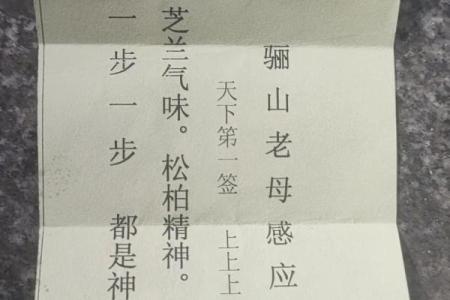 骊山老母感应
天下第一签 上上上
芝兰气味。松柏精神。
一步一步 都是神